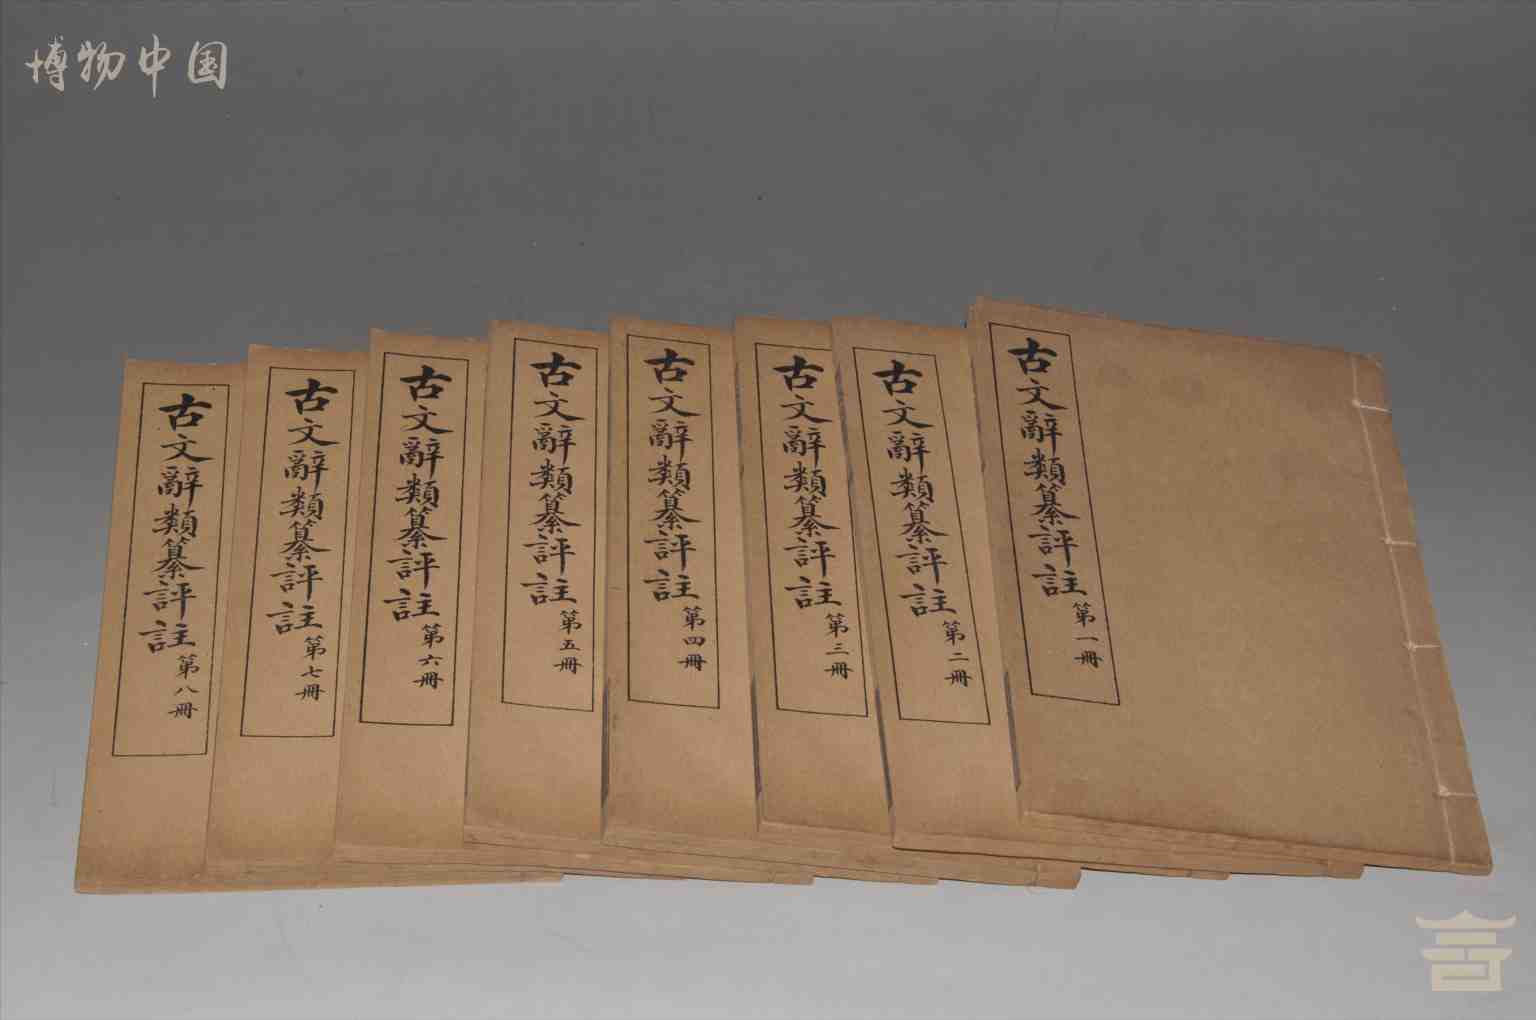 博物中国
古文辭類纂評註 第一冊
古文辭類纂評註 第二冊
古文辭類纂評註 第三冊
古文辭類纂評註 第四冊
古文辭類纂評註 第五冊
古文辭類纂評註 第六冊
古文辭類纂評註 第七冊
古文辭類纂評註 第八冊